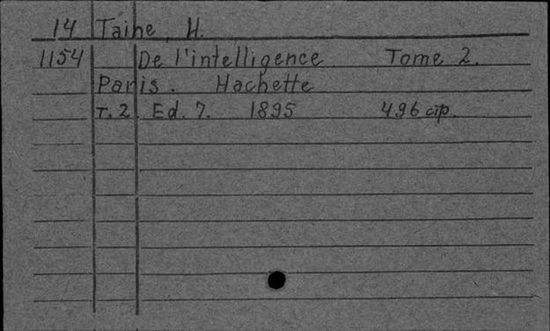 14 Taine, H.
1154 De l'intelligence Tome 2.
Paris. Hachette
т.2. Ed. 7. 1895 496 стр.